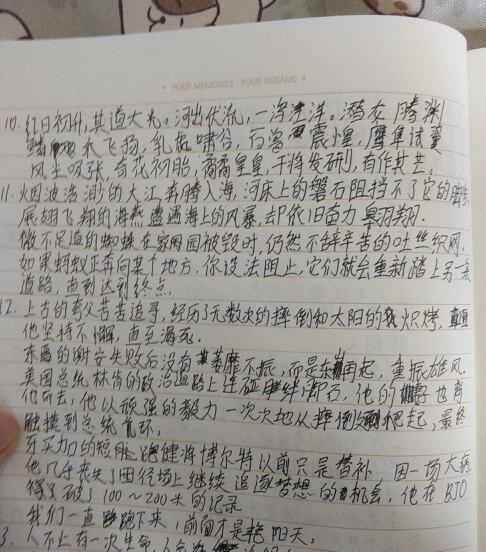 YOUR MEMORIES YOUR DREAMS
10. 红日初升,其道大光。河出伏流,一泻汪洋。潜龙腾渊
飞扬,乳虎啸谷,百兽震惶,鹰隼试翼
风尘吸张,奇花初胎,矞矞皇皇,干将发硎,有作其芒。
11. 烟波浩渺的大江奔腾入海,河床上的磐石阻挡不了它的
展翅飞翔的海燕遭遇海上的风暴,却依旧奋力翱翔.
微不足道的蜘蛛在家园被毁时,仍然不辞辛苦的吐丝织网.
如果蚂蚁正奔向某个地方.你设法阻止,它们就会重新踏上另一条
道路,直到达到终点.
12. 上古的夸父苦苦追寻,经历了无数次的摔倒和太阳的炽烤,
他坚持不懈,直至渴死.
东晋的谢安失败后没有萎靡不振,而是东山再起,重振雄风.
美国总统林肯的政治道路上连碰绊脚石,他的
他而去,他以顽强的毅力一次次地从摔倒爬起,最终
触摸到总统光环.
牙买加的短跑健将博尔特以前只是替补 因一场大病
他几乎丧失了田径场上继续追逐梦想的机会,他在
破了100~200米的记录
我们一直跑下来,前面才是艳阳天.
3. 人不止有一次生命,